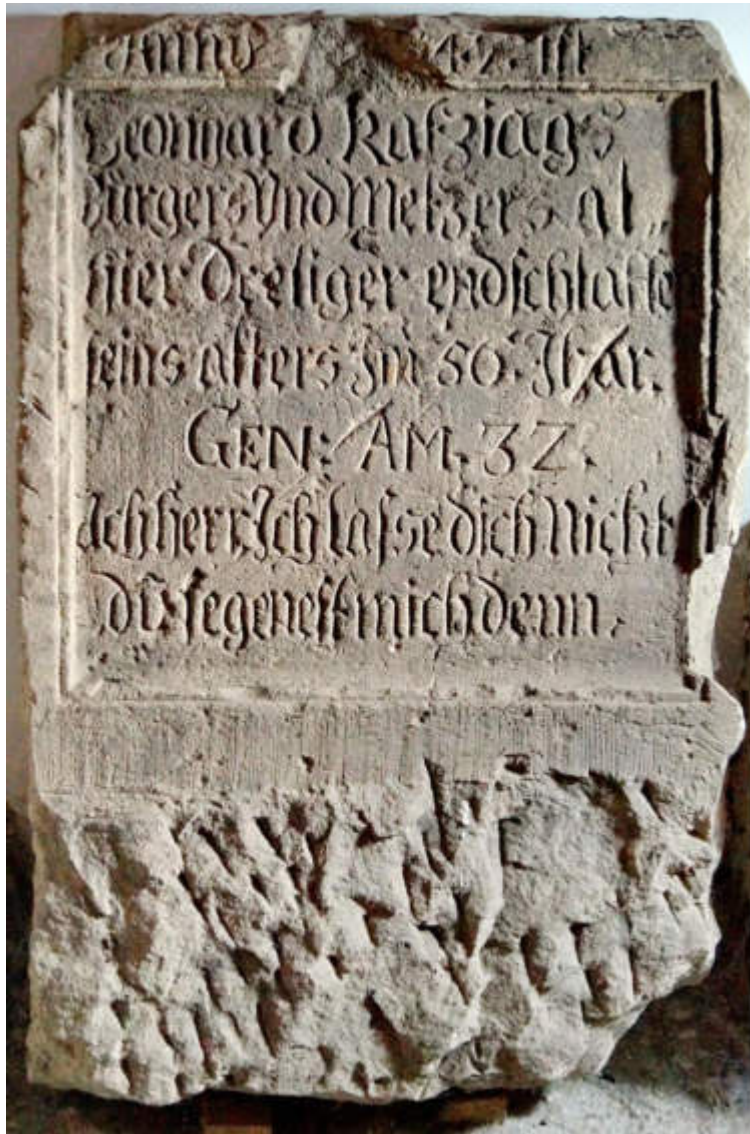 Anno 4.7. Ist
Leonhard Katziags
Bürgers Vnd Metzers al
hier Seeliger endschlaffe
seins alters Im 56. Jhar.
GEN: AM. 32.
Ach herr Ich Lasse dich Nicht
du segenest mich denn.